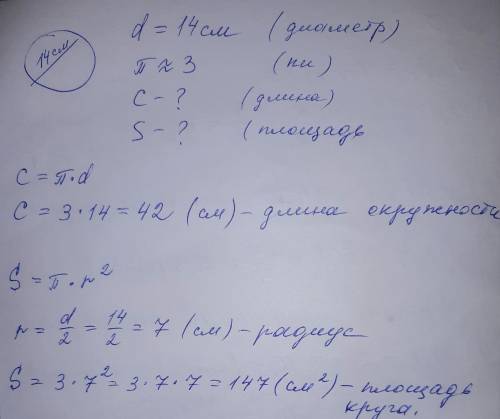 14см
d = 14 см (диаметр)
π ≈ 3 (пи)
C - ? (длина)
S - ? (площадь
C = π · d
C = 3 · 14 = 42 (см) - длина окружности
S = π · r²
r = d/2 = 14/2 = 7 (см) - радиус
S = 3 · 7² = 3 · 7 · 7 = 147 (см²) - площадь
круга.